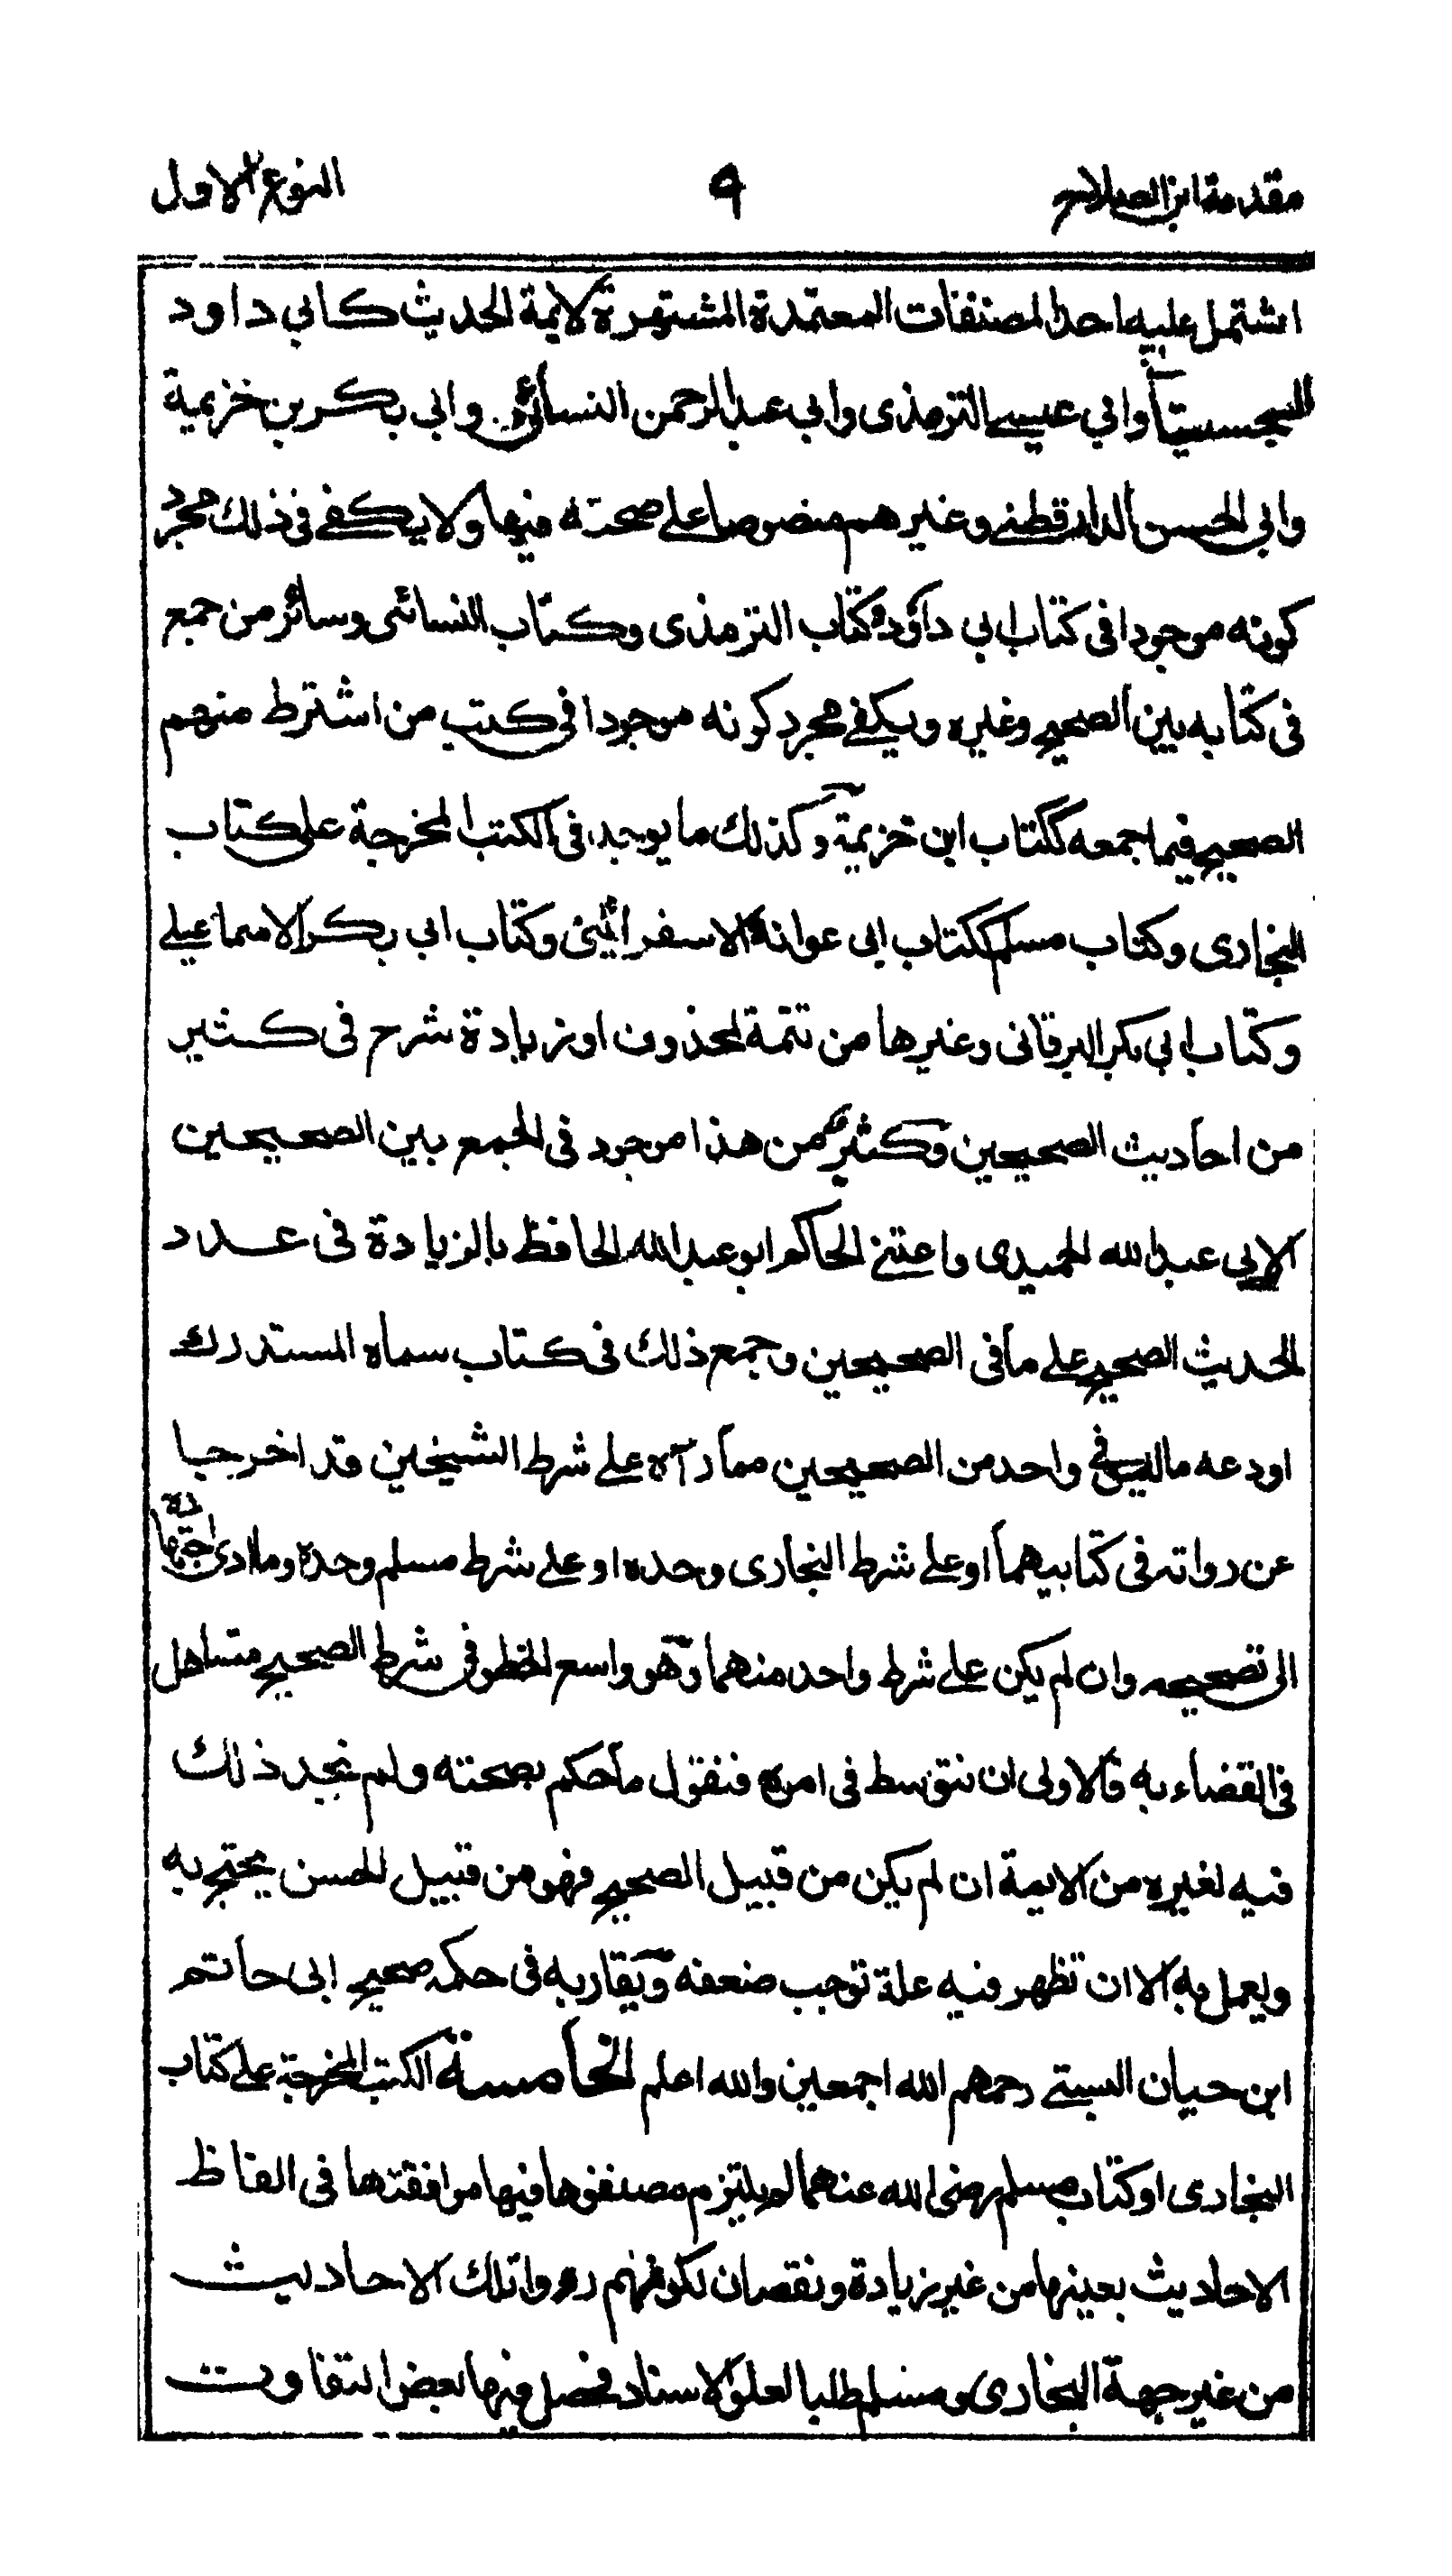 مقدمة ابن الصلاح ٩ النوع الاول
اشتمل عليه احد المصنفات المعتمدة المشتهرة لايمة الحديث كابي داود
السجستاني وابي عيسى الترمذى وابي عبد الرحمن النسائى وابي بكر بن خزيمة
وابي الحسن الدارقطني وغيرهم منصوصا على صحته فيها ولا يكفي في ذلك مجرد
كونه موجودا في كتاب ابي داؤد وكتاب الترمذى وكتاب النسائى وسائر من جمع
في كتابه بين الصحيح وغيره ويكفي مجرد كونه موجودا في كتب من اشترط منهم
الصحيح فيما جمعه ككتاب ابن خزيمة وكذلك ما يوجد في الكتب المخرجة على كتاب
البخارى وكتاب مسلم ككتاب ابي عوانة الاسفرائينى وكتاب ابي بكر الاسماعيلي
وكتاب ابي بكر البرقانى وغيرها من تتمة لمحذوف او زيادة شرح في كثير
من احاديث الصحيحين وكثير من هذا موجود في الجمع بين الصحيحين
لابي عبد الله الحميدى واعتنى الحاكم ابو عبد الله الحافظ بالزيادة في عدد
الحديث الصحيح على ما في الصحيحين وجمع ذلك في كتاب سماه المستدرك
اودعه ما ليس في واحد من الصحيحين مما رآه على شرط الشيخين قد اخرجا
عن رواته في كتابيهما او على شرط البخارى وحده او على شرط مسلم وحده وما ادى اجتهاده
الى تصحيحه وان لم يكن على شرط واحد منهما وهو واسع الخطو في شرط الصحيح متساهل
في القضاء به فالاولى ان نتوسط في امره فنقول ما حكم بصحته ولم نجد ذلك
فيه لغيره من الايمة ان لم يكن من قبيل الصحيح فهو من قبيل الحسن يحتج به
ويعمل به الا ان تظهر فيه علة توجب ضعفه ويقاربه في حكمه صحيح ابي حاتم
ابن حبان البستي رحمهم الله اجمعين والله اعلم الخامسة الكتب المخرجة على كتاب
البخارى او كتاب مسلم رضى الله عنهما لم يلتزم مصنفوها فيها موافقتها في الفاظ
الاحاديث بعينها من غير زيادة ونقصان لكونهم رووا تلك الاحاديث
من غير جهة البخارى ومسلم طلبا لعلو الاسناد فحصل فيها بعض التفاوت